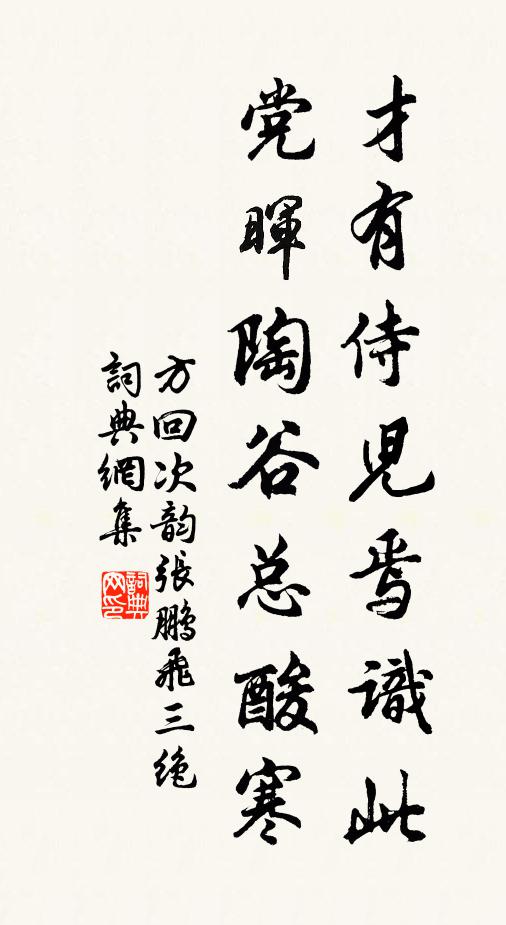 才有侍児焉識此
党暉陶谷总酸寒
方回次韵張鵬飛三绝
詞典網集
詞典
网印